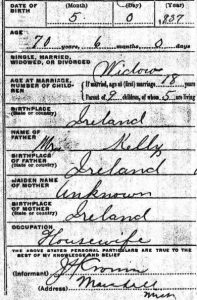 DATE OF BIRTH
(Month) (Day) (Year)
5 0 ,837
AGE
70 years, 6 months, 0 days
SINGLE, MARRIED, WIDOWED, OR DIVORCED
Widow
AGE AT MARRIAGE, NUMBER OF CHILDREN
If married, age at (first) marriage 18 years
Parent of 9 children, of whom 5 are living
BIRTHPLACE
(State or country)
Ireland
NAME OF FATHER
Mr. Kelly
BIRTHPLACE OF FATHER
(State or country)
Ireland
MAIDEN NAME OF MOTHER
Unknown
BIRTHPLACE OF MOTHER
(State or country)
Ireland
OCCUPATION
Housewife
THE ABOVE STATED PERSONAL PARTICULARS ARE TRUE TO THE
BEST OF MY KNOWLEDGE AND BELIEF
(Informant)
(Address)
Mich